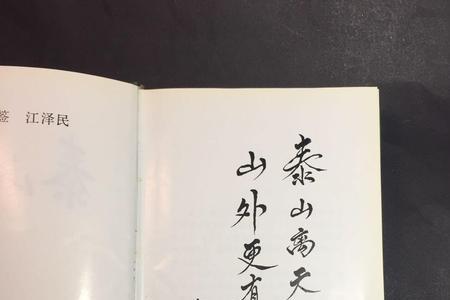 签 江泽民
泰山离天
山外更有